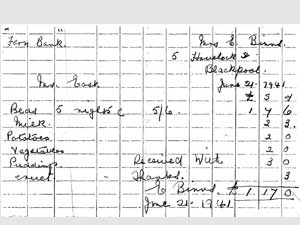 "Fern Bank." Mrs E. Binns.
5 Havelock St
Blackpool.
Mr. East. June 21. 1941
£ s d
Beds 5 nights @ 5/6 1 7 6
Milk. 2 3
Potatoes. 2 0
Vegetables 2 0
Puddings Received With 3 0
cruet Thanks. 3
E Binns £ 1. 17 0
June 21. 1941.